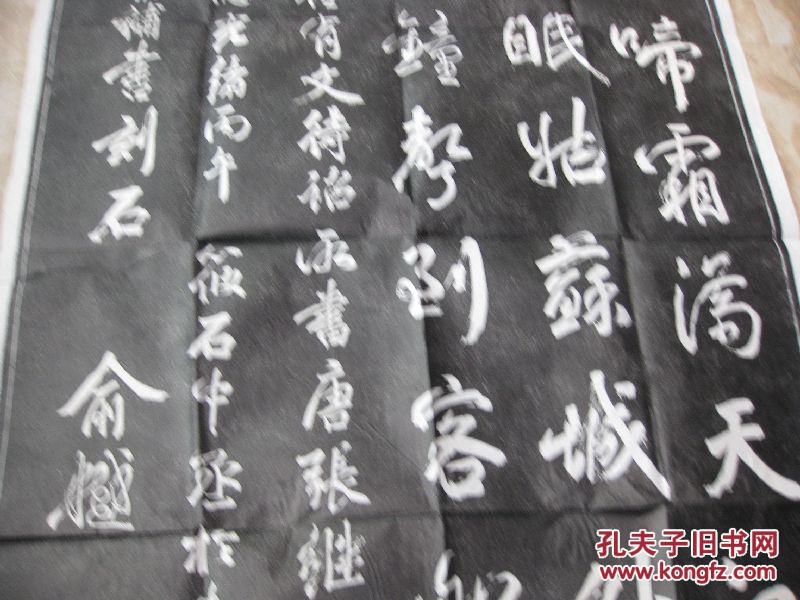 啼霜滿天
眠姑蘇城
鐘聲到客
有文待詔所書唐張继
光緒丙午 筱石中丞於
補書刻石 俞樾
孔夫子旧书网
www.kongfz.com